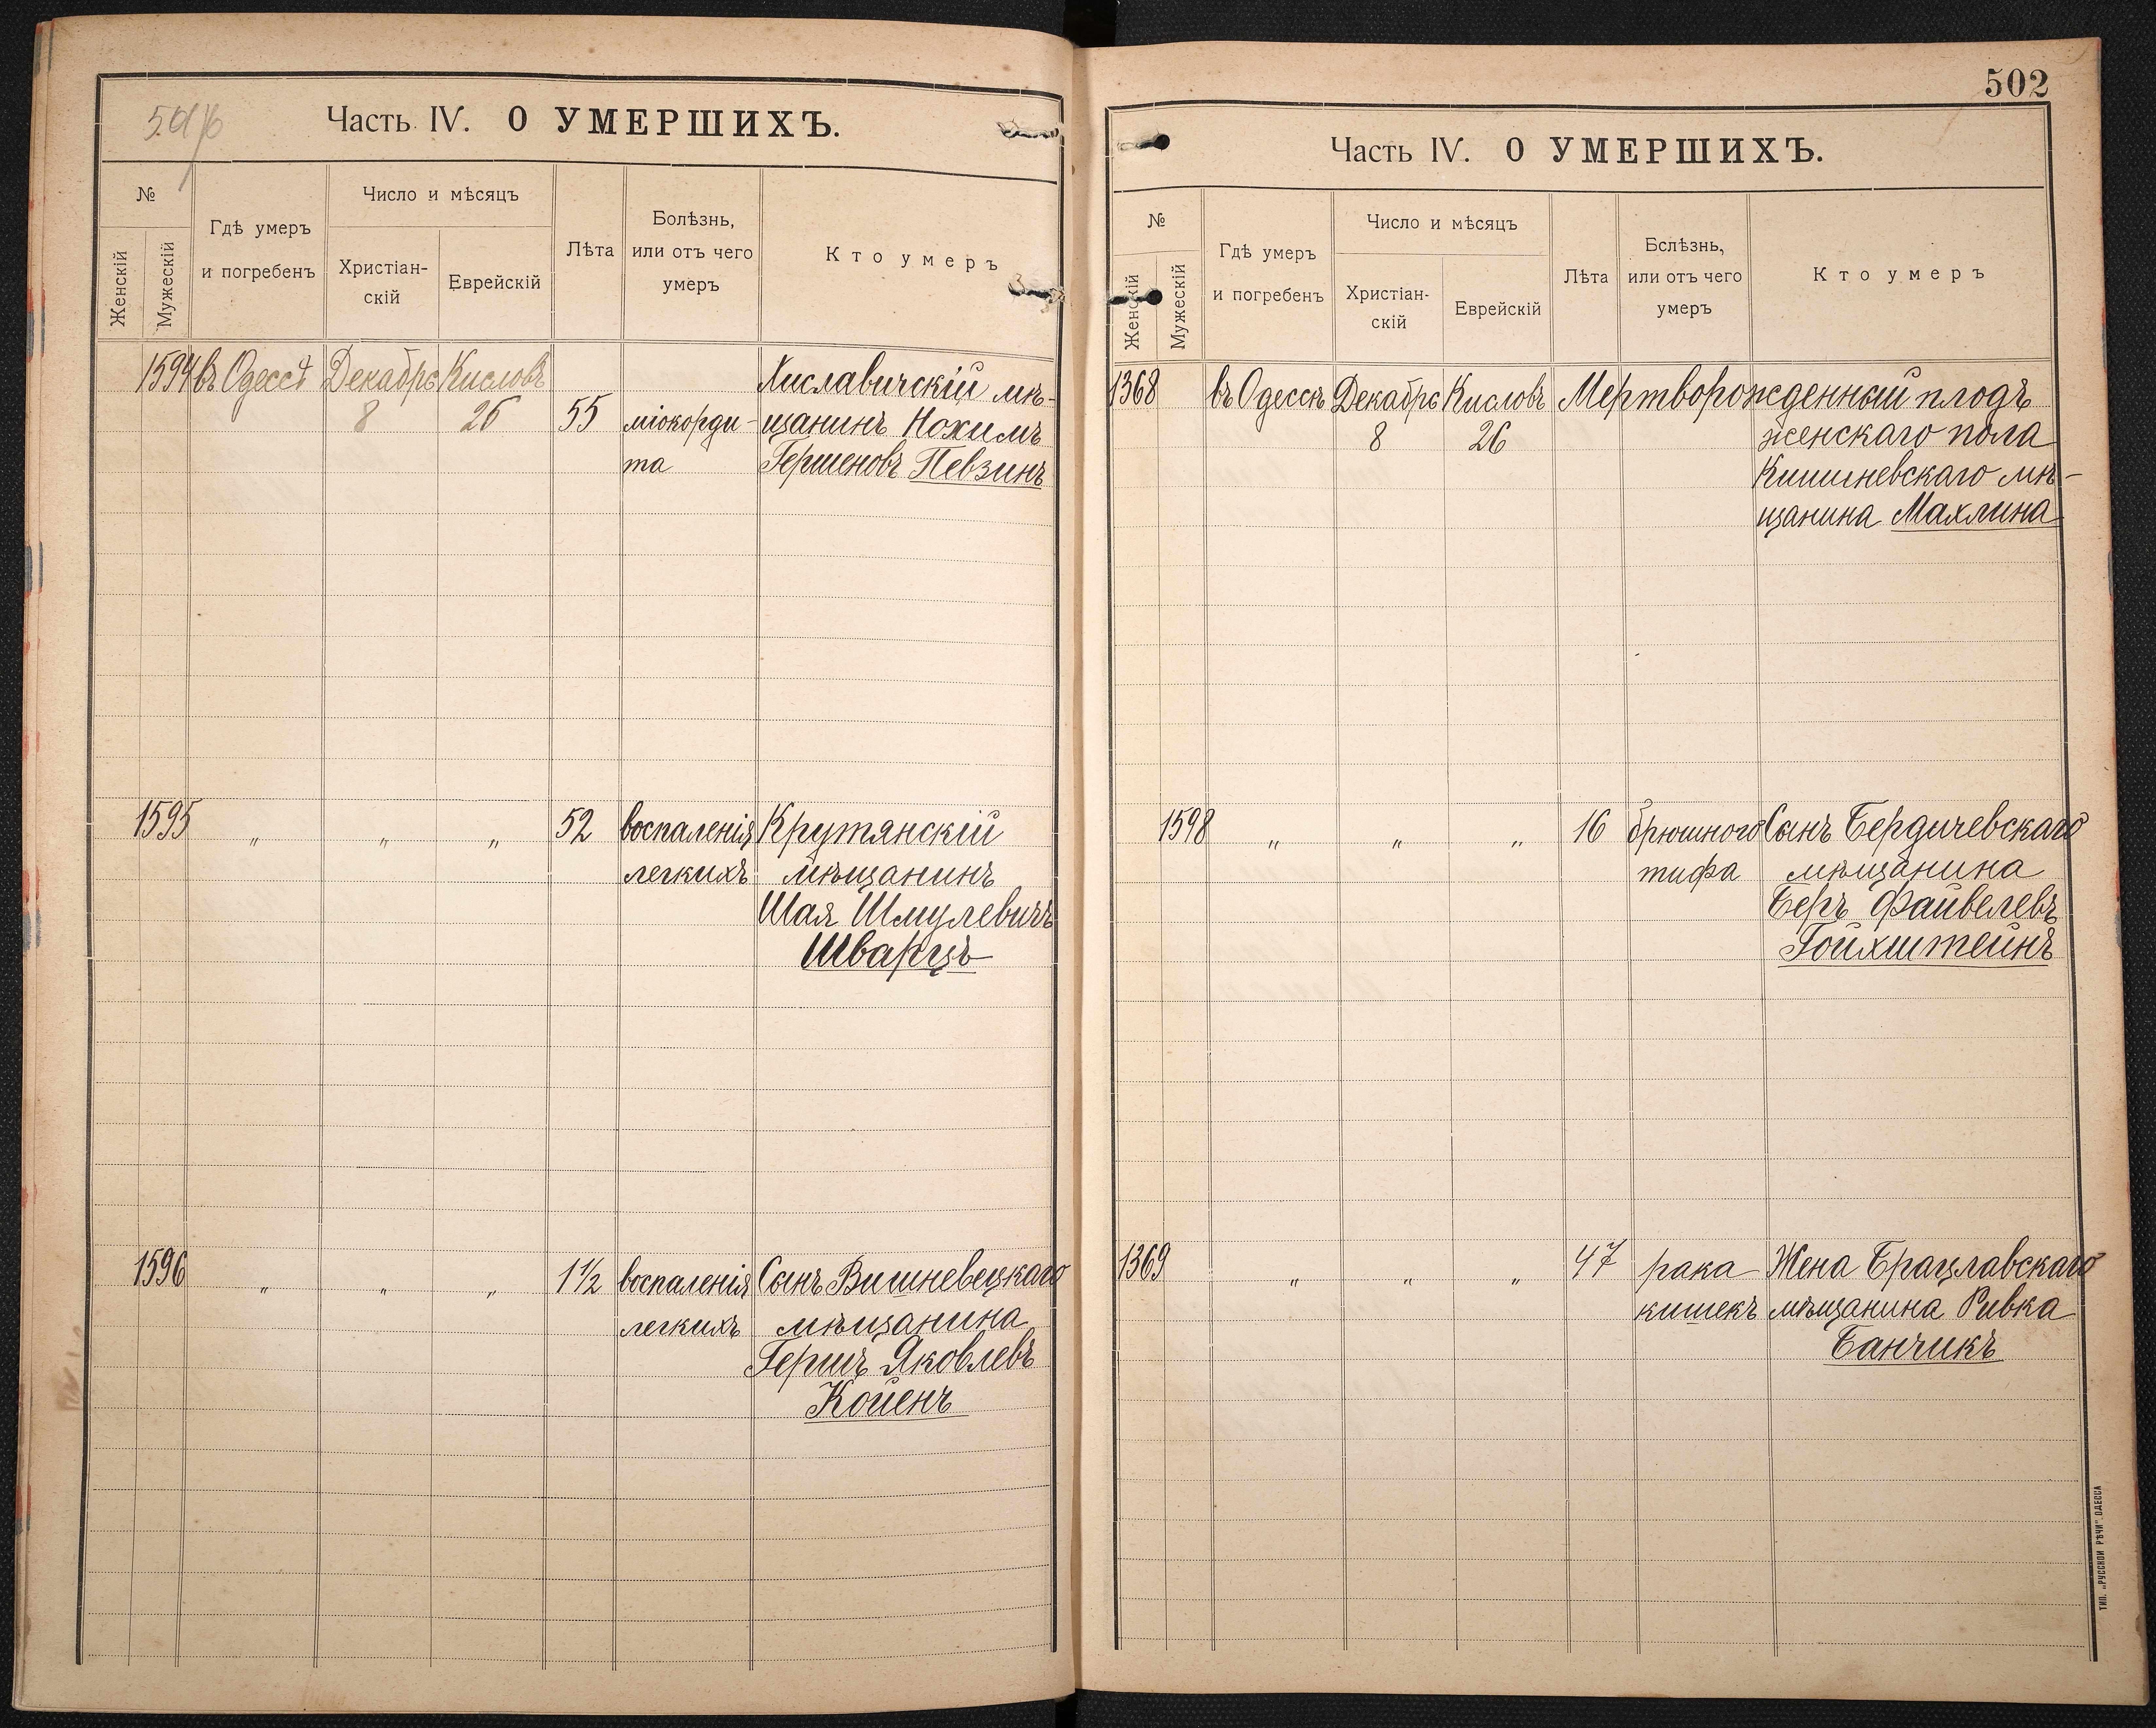 Часть IV. О УМЕРШИХЪ.
№
Женскій
Мужескій
Гдѣ умеръ
и погребенъ
Число и мѣсяцъ
Христіан-
скій
Еврейскій
Лѣта
Болѣзнь,
или отъ чего
умеръ
Кто умеръ
1594 въ Одессѣ Декабрь Кисловъ Хиславичскій мѣ-
8 26 55 міокорди- щанинъ Нохимъ
та Гершеновъ Певзинъ
1595 „ „ „ 52 воспаленія Крутянскій
легкихъ мѣщанинъ
Шая Шмулевичъ
Шварцъ
1596 „ „ „ 1½ воспаленія Сынъ Вишневецкаго
легкихъ мѣщанина
Гершъ Яковлевъ
Койенъ
502
Часть IV. О УМЕРШИХЪ.
№
Женскій
Мужескій
Гдѣ умеръ
и погребенъ
Число и мѣсяцъ
Христіан-
скій
Еврейскій
Лѣта
Бслѣзнь,
или отъ чего
умеръ
Кто умеръ
1368 въ Одессѣ Декабрь Кисловъ Мертворожденный плодъ
8 26 женскаго пола
Кишиневскаго мѣ-
щанина Махлина
1598 „ „ „ 16 брюшного Сынъ Бердичевскаго
тифа мѣщанина
Беръ Файвелевъ
Гойхштейнъ
1369 „ „ „ 47 рака Жена Брацлавскаго
кишекъ мѣщанина Ривка
Банчикъ
ТИП. „РУССКОЙ РѢЧИ“ ОДЕССА